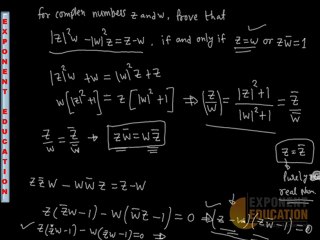 EXPONENT EDUCATION
for complex numbers z and w, Prove that
|z|²w - |w|²z = z-w, if and only if z=w or zw̅=1
|z|²w + w = |w|²z + z
w[|z|²+1] = z[|w|²+1] ⇒ (z/w) = |z|²+1 / |w|²+1 = z̅/w̅
z/w = z̅/w̅ → zw̅ = wz̅
z = z̅
Purely real Num
zz̅w - ww̅z = z-w
z(z̅w-1) - w(w̅z-1) = 0 ⇒ (z-w)(z̅w-1)=0
z(z̅w-1) - w(z̅w-1)=0 ⇒
EXPONENT
EDUCATION